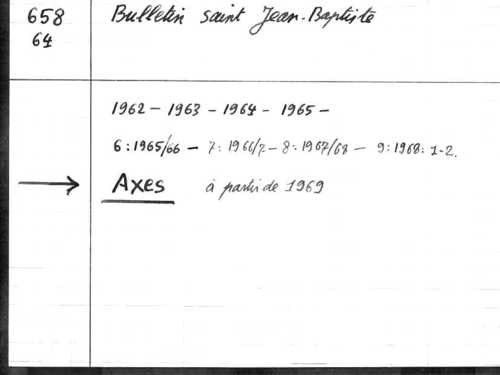 658 Bulletin saint Jean-Baptiste
64
1962 - 1963 - 1964 - 1965 -
6:1965/66 - 7:1966/7 - 8:1967/68 - 9:1968:1-2.
→ Axes à partir de 1969